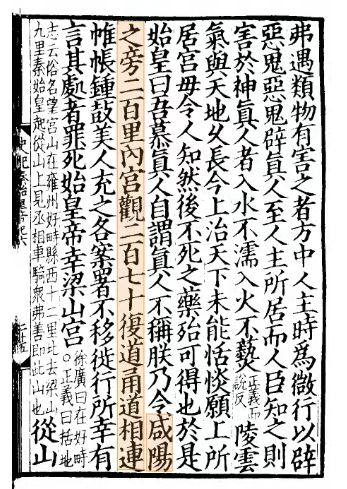 弗遇類物有害之者方中人主時為微行以辟
惡鬼惡鬼辟真人至人主所居而人臣知之則
害於神真人者入水不濡入火不爇正義而說反陵雲
氣與天地久長今上治天下未能恬惔願上所
居宮毋令人知然後不死之藥殆可得也於是
始皇曰吾慕真人自謂真人不稱朕乃令咸陽
之旁二百里內宮觀二百七十復道甬道相連
帷帳鍾鼓美人充之各案署不移徙行所幸有
言其處者罪死始皇帝幸梁山宮徐廣曰在好畤。正義曰括地從山
志云俗名望宮山在雍州好畤縣西十二里北去梁山
九里秦始皇起從山上見丞相車騎衆弗善即此山也